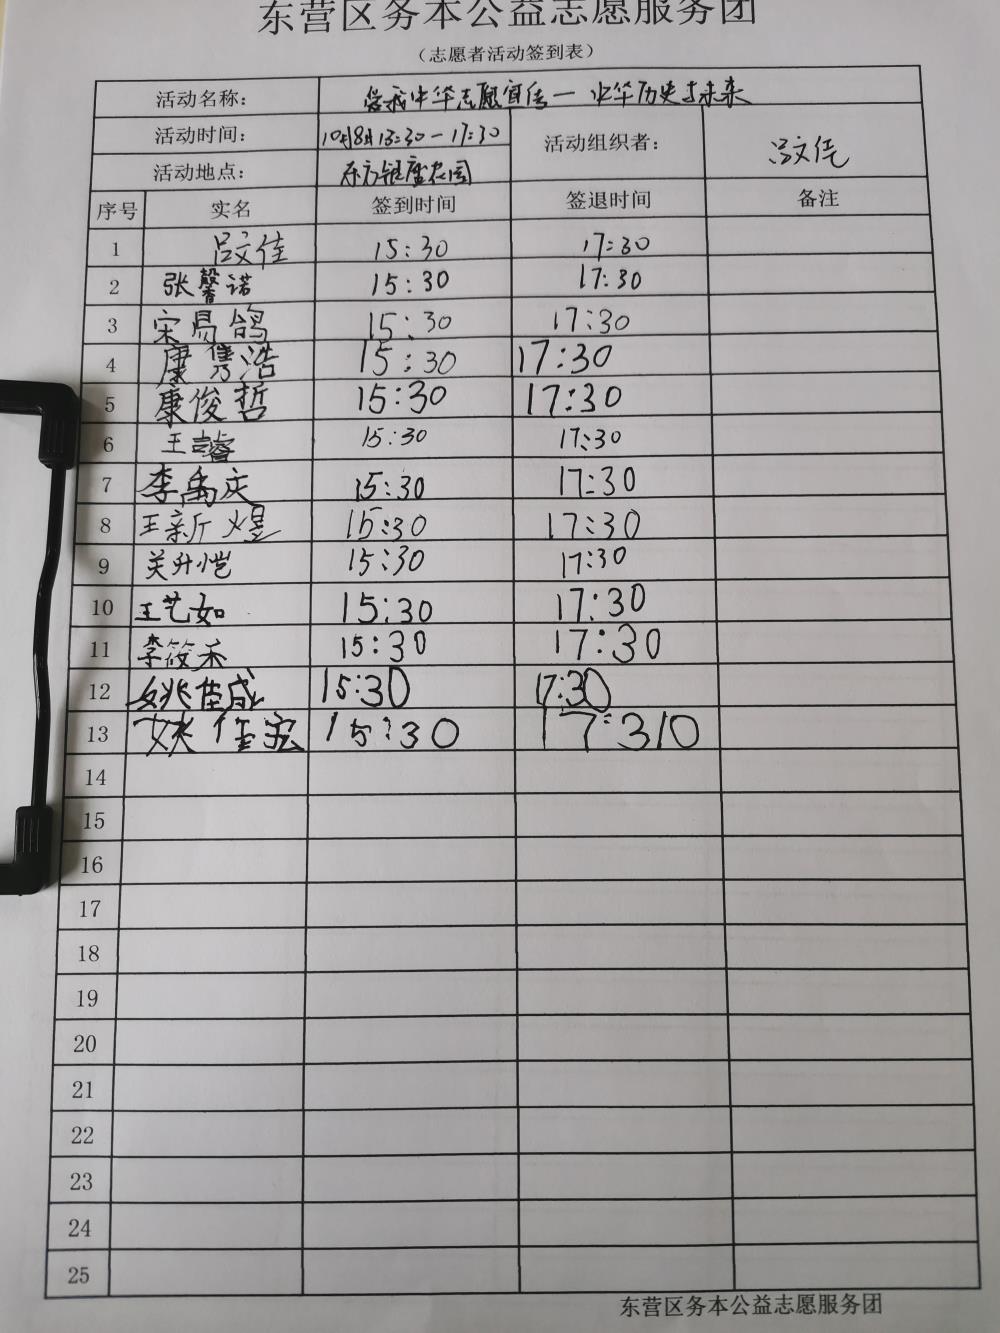 东营区务本公益志愿服务团
（志愿者活动签到表）
活动名称： 爱我中华志愿宣传一 中华历史与未来
活动时间： 10月8日 15:30-17:30 活动组织者： 吕文佳
活动地点： 东方银座花园
序号 实名 签到时间 签退时间 备注
1 吕文佳 15:30 17:30
2 张馨诺 15:30 17:30
3 宋易鸽 15:30 17:30
4 康隽浩 15:30 17:30
5 康俊哲 15:30 17:30
6 王 15:30 17:30
7 李禹庆 15:30 17:30
8 王新煜 15:30 17:30
9 关升恺 15:30 17:30
10 王艺如 15:30 17:30
11 李筱禾 15:30 17:30
12 姚佳成 15:30 17:30
13 佳宏 15:30 17:310
14
15
16
17
18
19
20
21
22
23
24
25
东营区务本公益志愿服务团